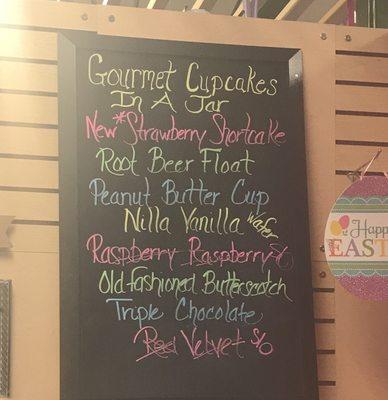 Gourmet Cupcakes
In A Jar
New* Strawberry Shortcake
Root Beer Float
Peanut Butter Cup
Nilla Vanilla Wafer
Raspberry Raspberry
Old-fashioned Butterscotch
Triple Chocolate
Red Velvet S/O
Happ
EAST